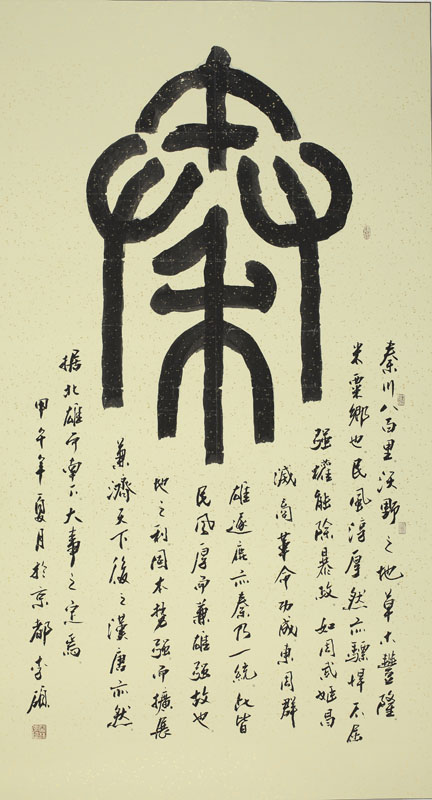 秦
秦川八百里沃野之地草木豐隆
米粟鄉也民風淳厚然亦驃悍不屈
強權能除暴政如周武姬昌
滅商革命功成東周群
雄逐鹿亦秦乃一統此皆
民風厚而兼雄強故也
地之利固本強而擴展
兼濟天下後之漢唐亦然
据北雄而南下大事之定焉
甲午年夏月於京都李